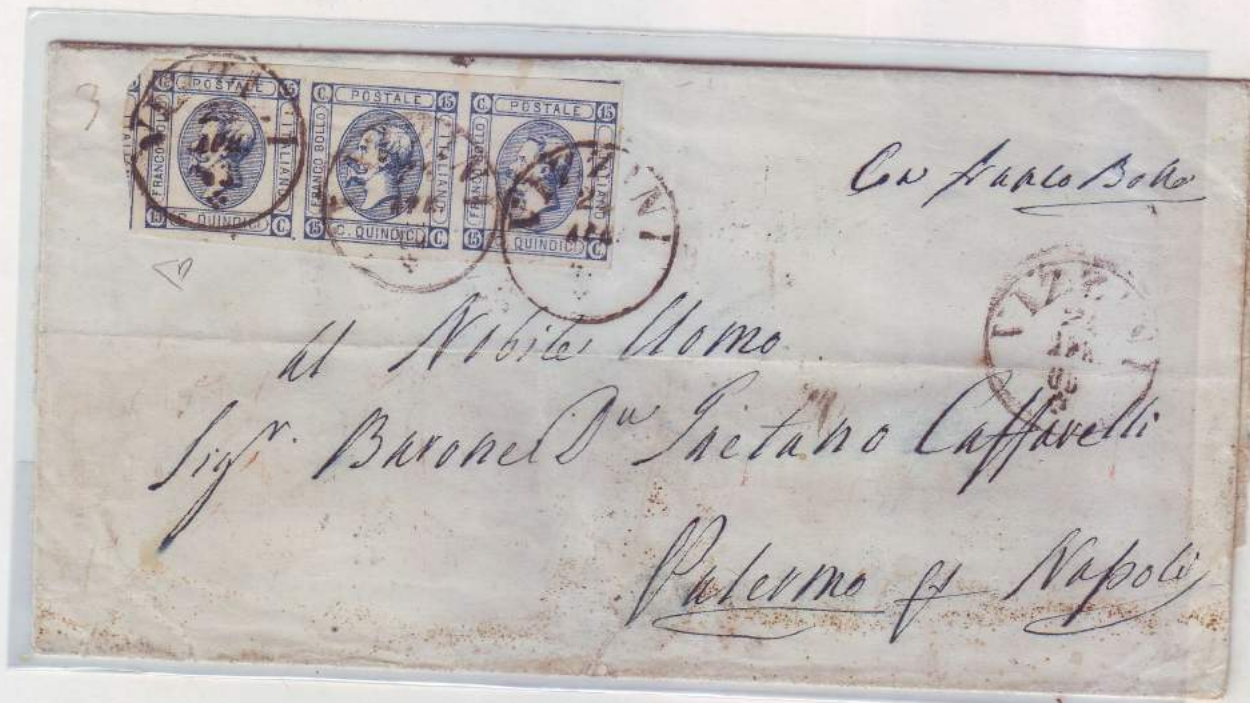 3
C. POSTALE 15
FRANCO BOLLO
ITALIANO
15 C. QUINDICI C.
C. POSTALE 15
FRANCO BOLLO
ITALIANO
15 C. QUINDICI C.
C. POSTALE 15
FRANCO BOLLO
ITALIANO
15 C. QUINDICI C.
APR
Con franco Bollo
VIZZINI
APR
Al Nobile Uomo
Sigr. Barone Dn Gaetano Caffarelli
Palermo pr Napoli